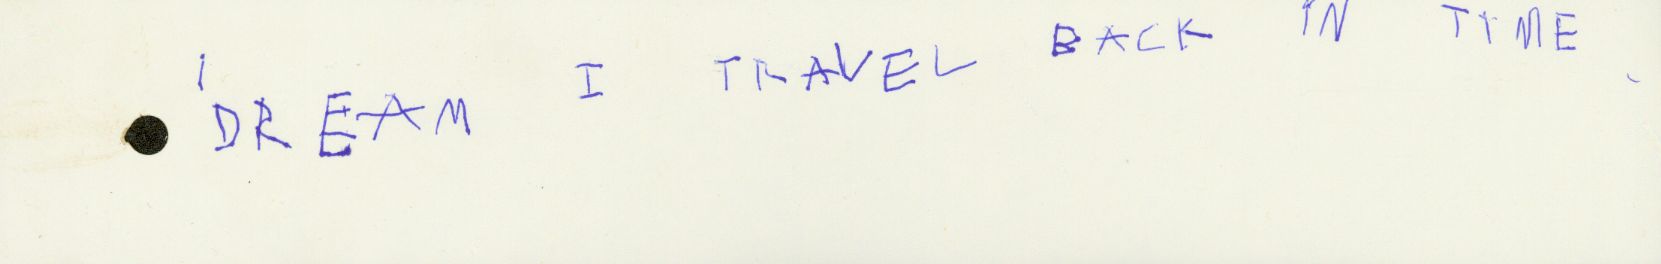 I DREAM I TRAVEL BACK IN TIME.